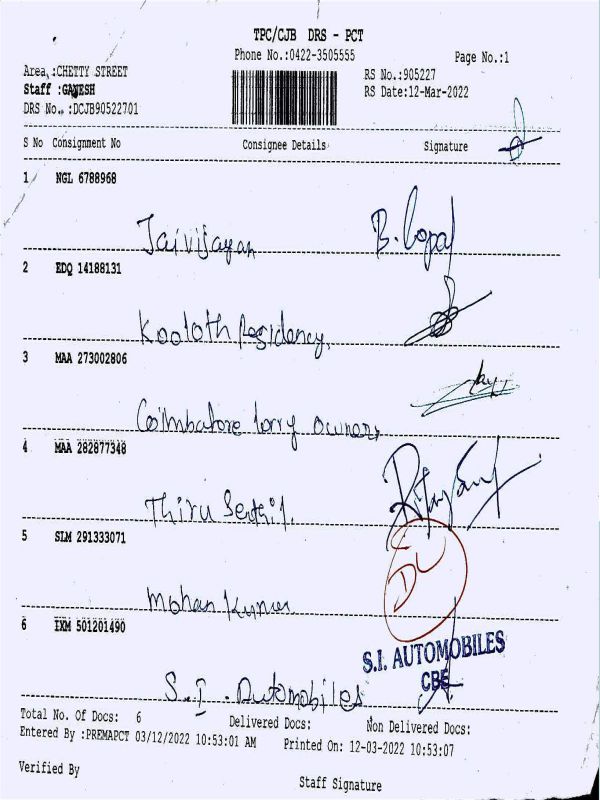 TPC/CJB DRS - PCT
Phone No.:0422-3505555 Page No.:1
Area :CHETTY STREET RS No.:905227
Staff :GANESH RS Date:12-Mar-2022
DRS No. :DCJB90522701
S No Consignment No Consignee Details Signature
1 NGL 6788968
Jaivijayan B. Gopal
2 EDQ 14188131
Kooloth Residency,
3 MAA 273002806
Coimbatore lorry owners,
4 MAA 282877348
Thiru Senthil.
5 SLM 291333071
DL
Mohan Kumar
6 IXM 501201490
S.I. AUTOMOBILES
CBE
S. I . Automobiles
Total No. Of Docs: 6 Delivered Docs: Non Delivered Docs:
Entered By :PREMAPCT 03/12/2022 10:53:01 AM Printed On: 12-03-2022 10:53:07
Verified By Staff Signature